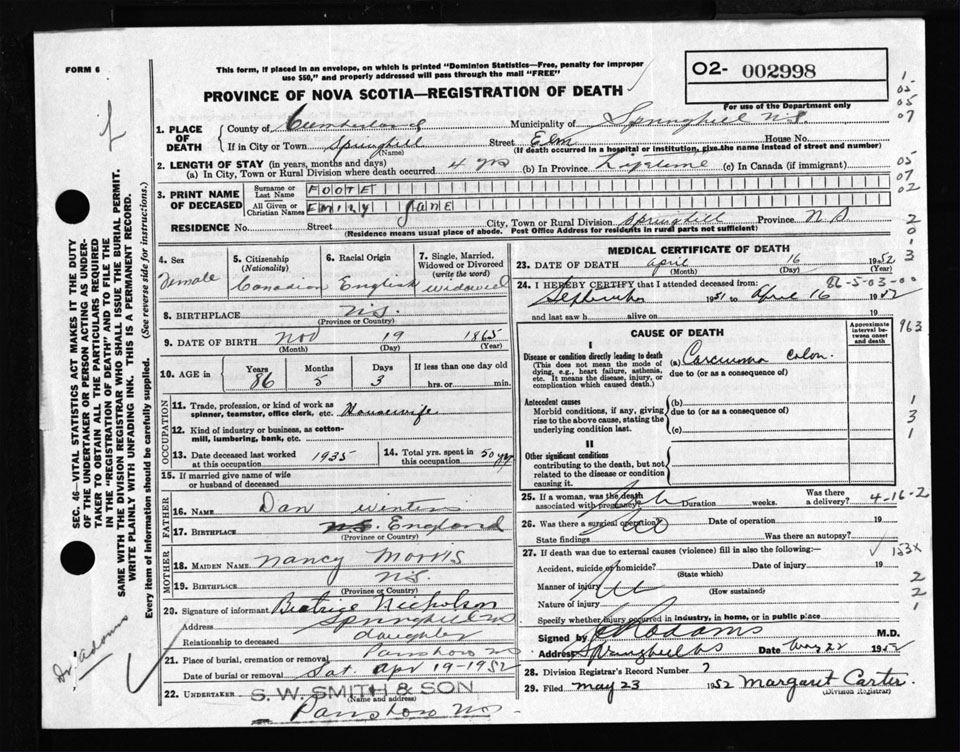 FORM 6
This form, if placed in an envelope, on which is printed "Dominion Statistics—Free, penalty for improper
use $50," and properly addressed will pass through the mail "FREE"
O2- 002998
For use of the Department only
PROVINCE OF NOVA SCOTIA—REGISTRATION OF DEATH
1. PLACE OF DEATH County of Cumberland Municipality of Springhill N.S.
If in City or Town Springhill (Name) Street Elm House No.
(If death occurred in a hospital or institution, give the name instead of street and number)
2. LENGTH OF STAY (in years, months and days)
(a) In City, Town or Rural Division where death occurred 4 yrs (b) In Province Lifetime (c) In Canada (if immigrant)
3. PRINT NAME OF DECEASED Surname or Last Name FOOTE
All Given or Christian Names EMILY JANE
RESIDENCE No. Street City, Town or Rural Division Springhill Province N.S.
(Residence means usual place of abode. Post Office Address for residents in rural parts not sufficient)
4. Sex Female
5. Citizenship (Nationality) Canadian
6. Racial Origin English
7. Single, Married, Widowed or Divorced (write the word) widowed
8. BIRTHPLACE N.S.
(Province or Country)
9. DATE OF BIRTH Nov 19 1865
(Month) (Day) (Year)
10. AGE in Years 86 Months 5 Days 3 If less than one day old hrs. or min.
OCCUPATION
11. Trade, profession, or kind of work as spinner, teamster, office clerk, etc. Housewife
12. Kind of industry or business, as cotton-mill, lumbering, bank, etc.
13. Date deceased last worked at this occupation 1935
14. Total yrs. spent in this occupation 50 yrs
15. If married give name of wife or husband of deceased
FATHER
16. Name Dan
17. Birthplace N.S. England
(Province or Country)
MOTHER
18. MAIDEN NAME Nancy Morris
19. BIRTHPLACE N.S.
(Province or Country)
20. Signature of informant Beatrice Nicholson
Address Springhill NS
Relationship to deceased daughter
21. Place of burial, cremation or removal
Date of burial or removal Sat. Apr 19-1952
22. UNDERTAKER S. W. SMITH & SON
(Name and address)
MEDICAL CERTIFICATE OF DEATH
23. DATE OF DEATH April 16 1952
(Month) (Day) (Year)
86-5-03-00
24. I HEREBY CERTIFY that I attended deceased from:
September 1951 to April 16 1952
and last saw h alive on 19
CAUSE OF DEATH
Approximate interval between onset and death
I
Disease or condition directly leading to death (a) Carcinoma colon
(This does not mean the mode of dying, e.g., heart failure, asthenia, etc. It means the disease, injury, or complication which caused death.)
due to (or as a consequence of)
Antecedent causes (b)
Morbid conditions, if any, giving rise to the above cause, stating the underlying condition last.
due to (or as a consequence of)
(c)
II
Other significant conditions
contributing to the death, but not related to the disease or condition causing it.
25. If a woman, was the death associated with pregnancy? Duration weeks. Was there a delivery? 4-16-2
26. Was there a surgical operation? Date of operation 19
State findings Was there an autopsy?
27. If death was due to external causes (violence) fill in also the following:—
Accident, suicide or homicide? Date of injury 19
(State which)
Manner of injury
(How sustained)
Nature of injury
Specify whether injury occurred in industry, in home, or in public place
Signed by Adams M.D.
Address Springhill NS Date 22 1952
28. Division Registrar's Record Number 7
29. Filed May 23 1952 Margaret Carter
(Division Registrar)
SEC. 46—VITAL STATISTICS ACT MAKES IT THE DUTY
OF THE UNDERTAKER OR PERSON ACTING AS UNDER-
TAKER TO OBTAIN ALL THE PARTICULARS REQUIRED
IN THE "REGISTRATION OF DEATH" AND TO FILE THE
SAME WITH THE DIVISION REGISTRAR WHO SHALL ISSUE THE BURIAL PERMIT.
WRITE PLAINLY WITH UNFADING INK. THIS IS A PERMANENT RECORD.
Every item of information should be carefully supplied. (See reverse side for instructions.)
Dr. Adams
1-
05
07
05
07
02
2
0
3
963
1
3
1
153X
2
2
1